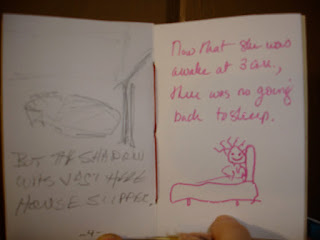 BUT THE SHADOW
WAS JUST HER
HOUSE SLIPPER.
-4-
Now that she was
awake at 3 am,
there was no going
back to sleep.